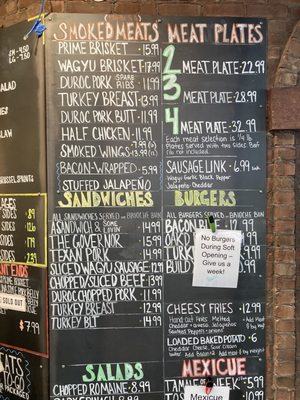 SMOKED MEATS
PRIME BRISKET · 15.99
WAGYU BRISKET · 17.99
DUROC PORK SPARE RIBS · 11.99
TURKEY BREAST · 13.99
DUROC PORK BUTT · 11.99
HALF CHICKEN · 11.99
SMOKED WINGS
BACON-WRAPPED · 5.99
STUFFED JALAPEÑO
SANDWICHES
ALL SANDWICHES SERVED ON BRIOCHE BUN
A SANDWICH & SOME LOVIN' 14.99
THE GOVERNOR · 15.99
TEXAN PORK · 14.99
SLICED WAGYU SAUSAGE · 12.99
CHOPPED/SLICED BEEF · 13.99
DUROC CHOPPED PORK · 11.99
TURKEY BREAST · 12.99
TURKEY BLT · 14.99
SALADS
CHOPPED ROMAINE · 8.99
MEAT PLATES
2 MEAT PLATE · 22.99
3 MEAT PLATE · 28.99
4 MEAT PLATE · 32.99
Each meat selection is 1/4 lb.
Plates served with two sides
not included
SAUSAGE LINK · 6.99 each
Wagyu Garlic Black Pepper
Jalapeño-Cheddar
BURGERS
ALL BURGERS SERVED ON BRIOCHE BUN
BACON
OAK
TURK
BUILD
No Burgers
During Soft
Opening –
Give us a
week!
CHEESY FRIES · 12.99
Hand Cut Fries Melted
Cheddar + Queso Jalapeños
LOADED BAKED POTATO · 6
Cheddar Cheese, Sour Cream
MEXICUE
TAMALE OF THE WEEK · 5.99
Mexicue
SIDES
SIDES
SIDES
SOLD OUT
$7.99